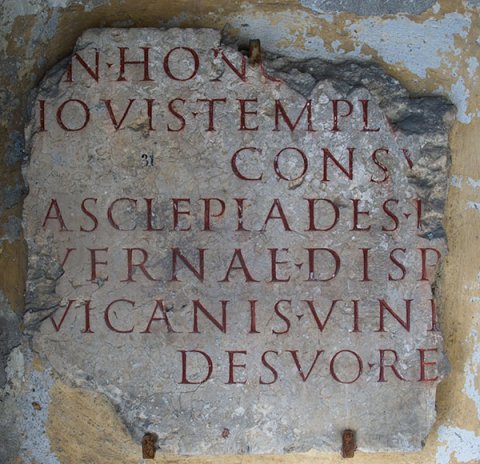 N·HONO
IOVIS·TEMPL
31
CONSV
ASCLEPIADES·
VERNAE·DISP
VICANIS·VINI
DESVO·RE